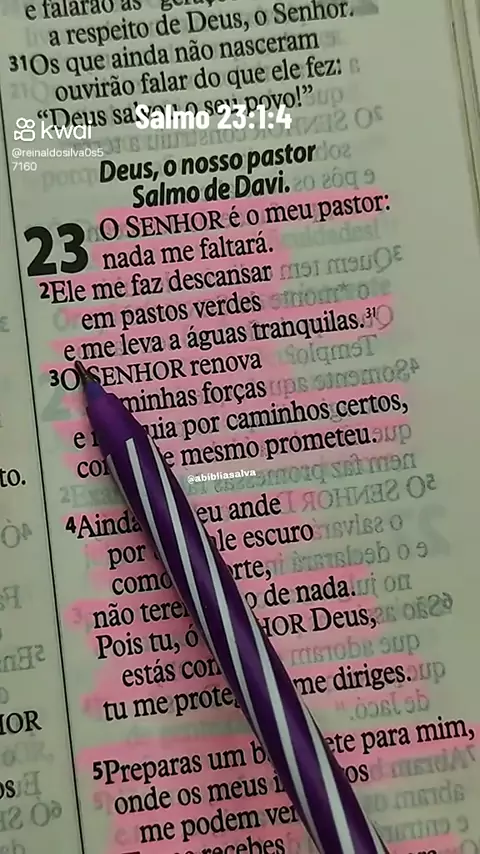 e falarão às
a respeito de Deus, o Senhor.
31Os que ainda não nasceram
ouvirão falar do que ele fez:
“Deus salvou o seu povo!”
Salmo 23:1:4
kwai
@reinaldosilva0s5
7160
Deus, o nosso pastor
Salmo de Davi.
23 O SENHOR é o meu pastor:
nada me faltará.
2Ele me faz descansar
em pastos verdes
e me leva a águas tranquilas.
3O SENHOR renova
minhas forças
e uia por caminhos certos,
co e mesmo prometeu.
@abibliasalva
to.
4Ainda eu ande
por le escuro
como rte,
não tere o de nada.
Pois tu, ó HOR Deus,
estás con
tu me prote me diriges.
IOR
5Preparas um b ete para mim,
onde os meus i os
me podem ver
recebes